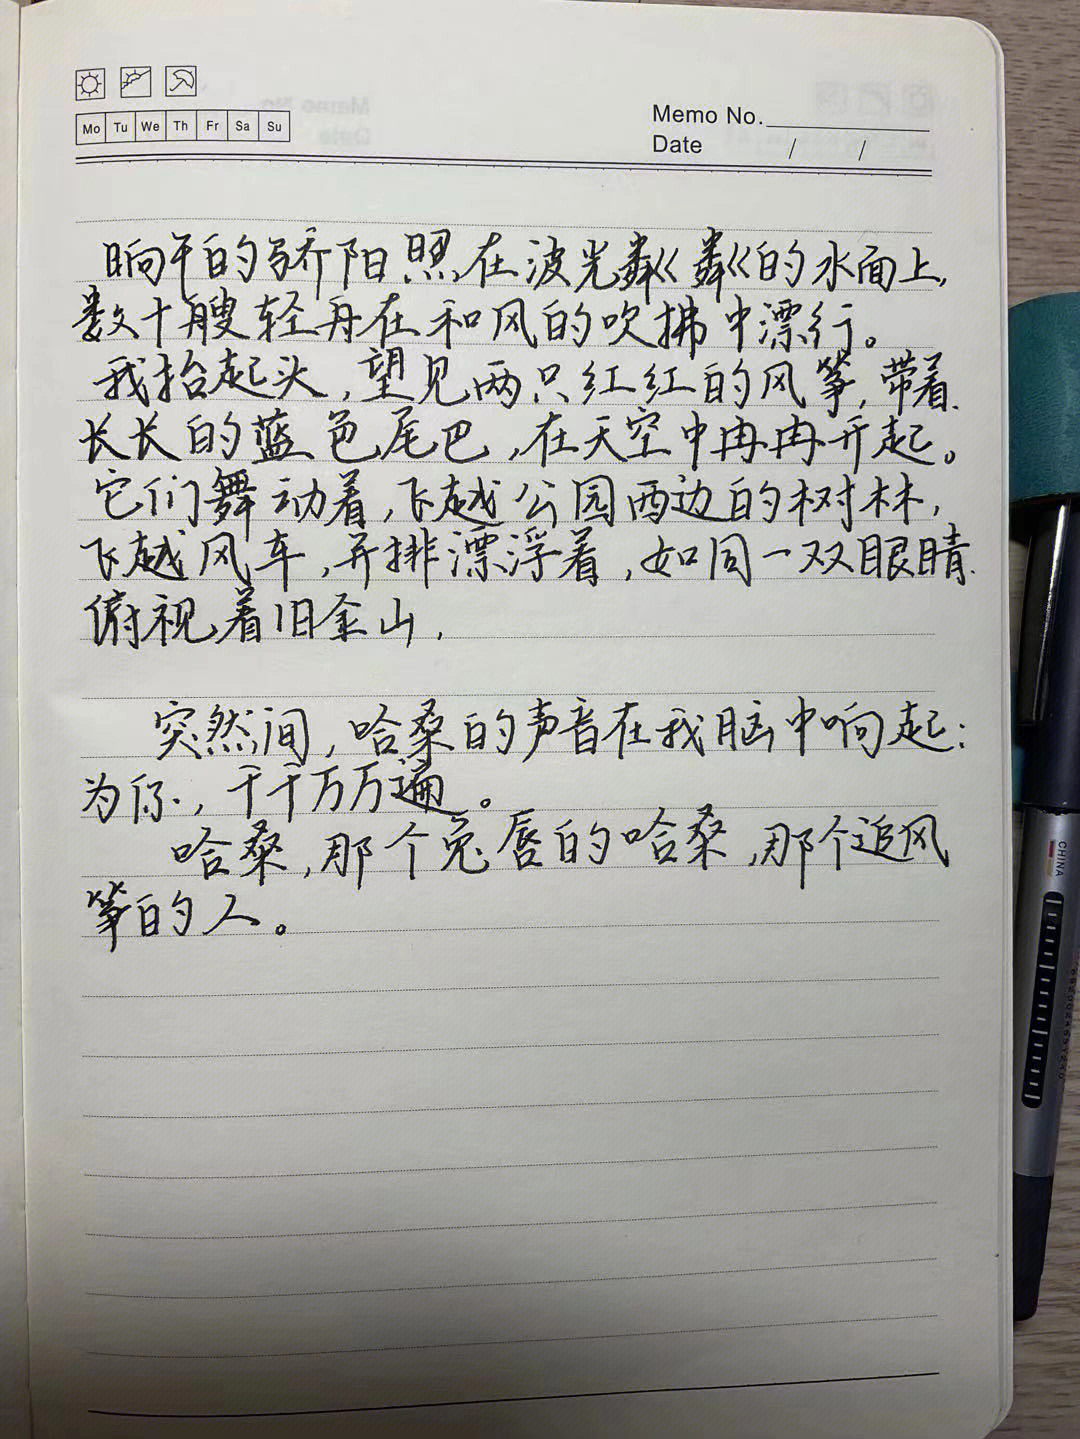 Mo Tu We Th Fr Sa Su
Memo No.
Date / /
晌午的骄阳照在波光粼粼的水面上,
数十艘轻舟在和风的吹拂中漂行。
我抬起头,望见两只红红的风筝,带着
长长的蓝色尾巴,在天空中冉冉升起。
它们舞动着,飞越公园西边的树林,
飞越风车,并排漂浮着,如同一双眼睛
俯视着旧金山,
突然间,哈桑的声音在我脑中响起:
为你,千千万万遍。
哈桑,那个兔唇的哈桑,那个追风
筝的人。
CHINA